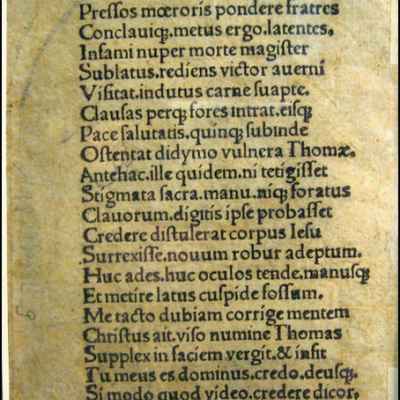 Pressos mœroris pondere fratres
Conclauiqꝫ metus ergo latentes.
Infami nuper morte magister
Sublatus.rediens victor auerni
Visitat.indutus carne suapte.
Clausas perqꝫ fores intrat.eisqꝫ
Pace salutatis.quinqꝫ subinde
Ostentat didymo vulnera Thomæ.
Antehac.ille quidem.ni tetigisset
Stigmata sacra.manu.niqꝫ foratus
Clauorum.digitis ipse probasset
Credere distulerat corpus Iesu
Surrexisse.nouum robur adeptum.
Huc ades.huc oculos tende.manusqꝫ
Et metire latus cuspide fossum.
Me tacto dubiam corrige mentem
Christus ait.viso numine Thomas
Supplex in faciem vergit.& infit
Tu meus es dominus.credo.deusqꝫ.
Si modo quod video.credere dicor.